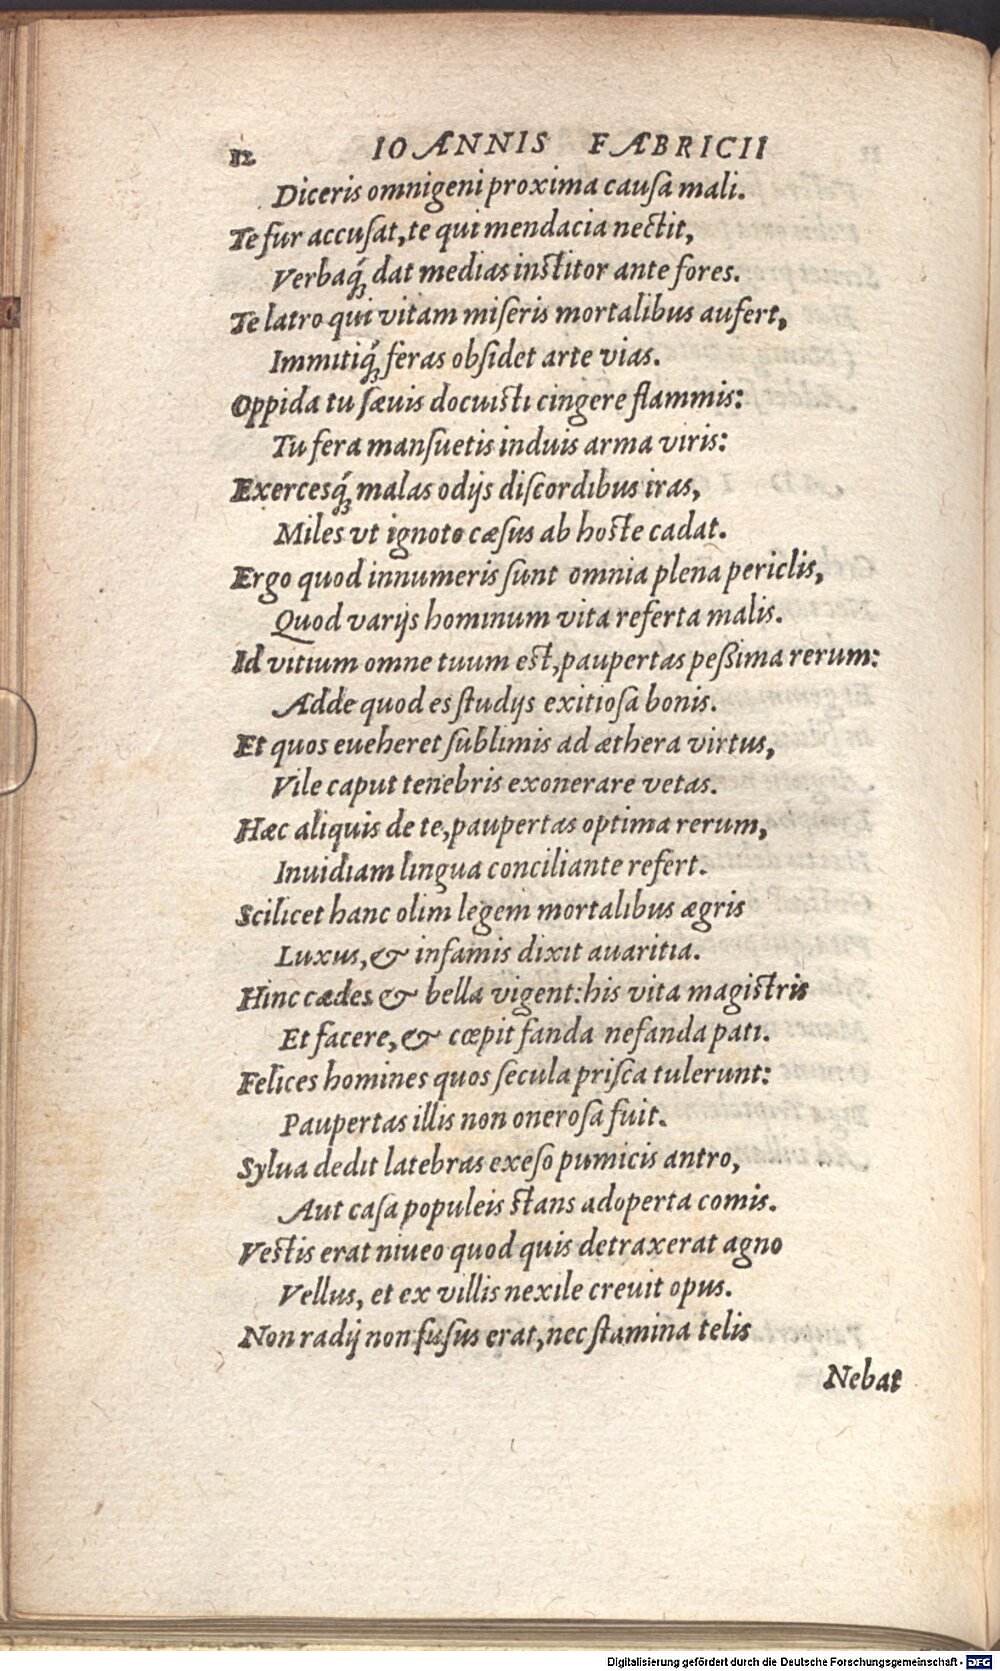 12 IOANNIS FABRICII
Diceris omnigeni proxima cauſa mali.
Te fur accuſat, te qui mendacia nectit,
Verbaq́; dat medias inſtitor ante fores.
Te latro qui vitam miſeris mortalibus aufert,
Immitiq́; feras obſidet arte vias.
Oppida tu ſæuis docuiſti cingere flammis:
Tu fera manſuetis induis arma viris:
Exercesq́; malas odijs diſcordibus iras,
Miles vt ignoto cæſus ab hoſte cadat.
Ergo quod innumeris ſunt omnia plena periclis,
Quod varijs hominum vita referta malis.
Id vitium omne tuum eſt, paupertas peßima rerum:
Adde quod es ſtudijs exitioſa bonis.
Et quos eueheret ſublimis ad æthera virtus,
Vile caput tenebris exonerare vetas.
Hæc aliquis de te, paupertas optima rerum,
Inuidiam lingua conciliante refert.
Scilicet hanc olim legem mortalibus ægris
Luxus, & infamis dixit auaritia.
Hinc cædes & bella vigent: his vita magiſtris
Et facere, & cœpit fanda nefanda pati.
Felices homines quos ſecula priſca tulerunt:
Paupertas illis non oneroſa fuit.
Sylua dedit latebras exeſo pumicis antro,
Aut caſa populeis ſtans adoperta comis.
Veſtis erat niueo quod quis detraxerat agno
Vellus, et ex villis nexile creuit opus.
Non radij non fuſus erat, nec ſtamina telis
Nebat
Digitalisierung gefördert durch die Deutsche Forschungsgemeinschaft - DFG